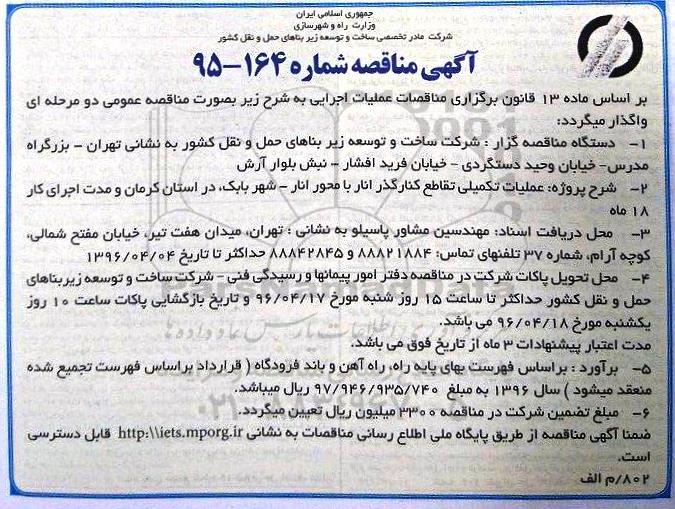 جمهوری اسلامی ایران
وزارت راه و شهرسازی
شرکت مادر تخصصی ساخت و توسعه زیر بناهای حمل و نقل کشور
آگهی مناقصه شماره ۱۶۴-۹۵
بر اساس ماده ۱۳ قانون برگزاری مناقصات عملیات اجرایی به شرح زیر بصورت مناقصه عمومی دو مرحله ای
واگذار میگردد:
۱- دستگاه مناقصه گزار : شرکت ساخت و توسعه زیر بناهای حمل و نقل کشور به نشانی تهران - بزرگراه
مدرس- خیابان وحید دستگردی - خیابان فرید افشار - نبش بلوار آرش
۲- شرح پروژه: عملیات تکمیلی تقاطع کنارگذر انار با محور انار - شهر بابک، در استان کرمان و مدت اجرای کار
۱۸ ماه
۳- محل دریافت اسناد: مهندسین مشاور پاسیلو به نشانی : تهران، میدان هفت تیر، خیابان مفتح شمالی،
کوچه آرام، شماره ۳۷ تلفنهای تماس: ۸۸۸۲۱۸۸۴ و ۸۸۸۴۲۸۴۵ حداکثر تا تاریخ ۱۳۹۶/۰۴/۰۴
۴- محل تحویل پاکات شرکت در مناقصه دفتر امور پیمانها و رسیدگی فنی - شرکت ساخت و توسعه زیربناهای
حمل و نقل کشور حداکثر تا ساعت ۱۵ روز شنبه مورخ ۹۶/۰۴/۱۷ و تاریخ بازگشایی پاکات ساعت ۱۰ روز
یکشنبه مورخ ۹۶/۰۴/۱۸ می باشد.
مدت اعتبار پیشنهادات ۳ ماه از تاریخ فوق می باشد.
۵- برآورد : براساس فهرست بهای پایه راه، راه آهن و باند فرودگاه ( قرارداد براساس فهرست تجمیع شده
منعقد میشود ) سال ۱۳۹۶ به مبلغ ۹۷/۹۴۶/۹۳۵/۷۴۰ ریال میباشد.
۶- مبلغ تضمین شرکت در مناقصه ۳۳۰۰ میلیون ریال تعیین میگردد.
ضمنا آگهی مناقصه از طریق پایگاه ملی اطلاع رسانی مناقصات به نشانی http:\\iets.mporg.ir قابل دسترسی
است.
۸۰۲/م الف